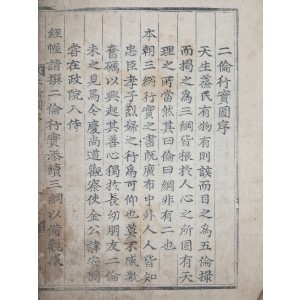 二倫行實圖序
天生蒸民有物有則該而目之爲五倫撮
而揭之爲三綱皆根於人心之所固有天
理之所當然其曰倫曰綱非有二也
本朝三綱行實之書旣廣布中外人人皆知
忠臣孝子烈婦之行爲可仰也莫不感激
奮礪以興起其善心獨於長幼朋友二倫
未之見焉今慶尚道觀察使金公諱安國
嘗在政院入侍
經幄請撰二倫行實添續三綱以備觀